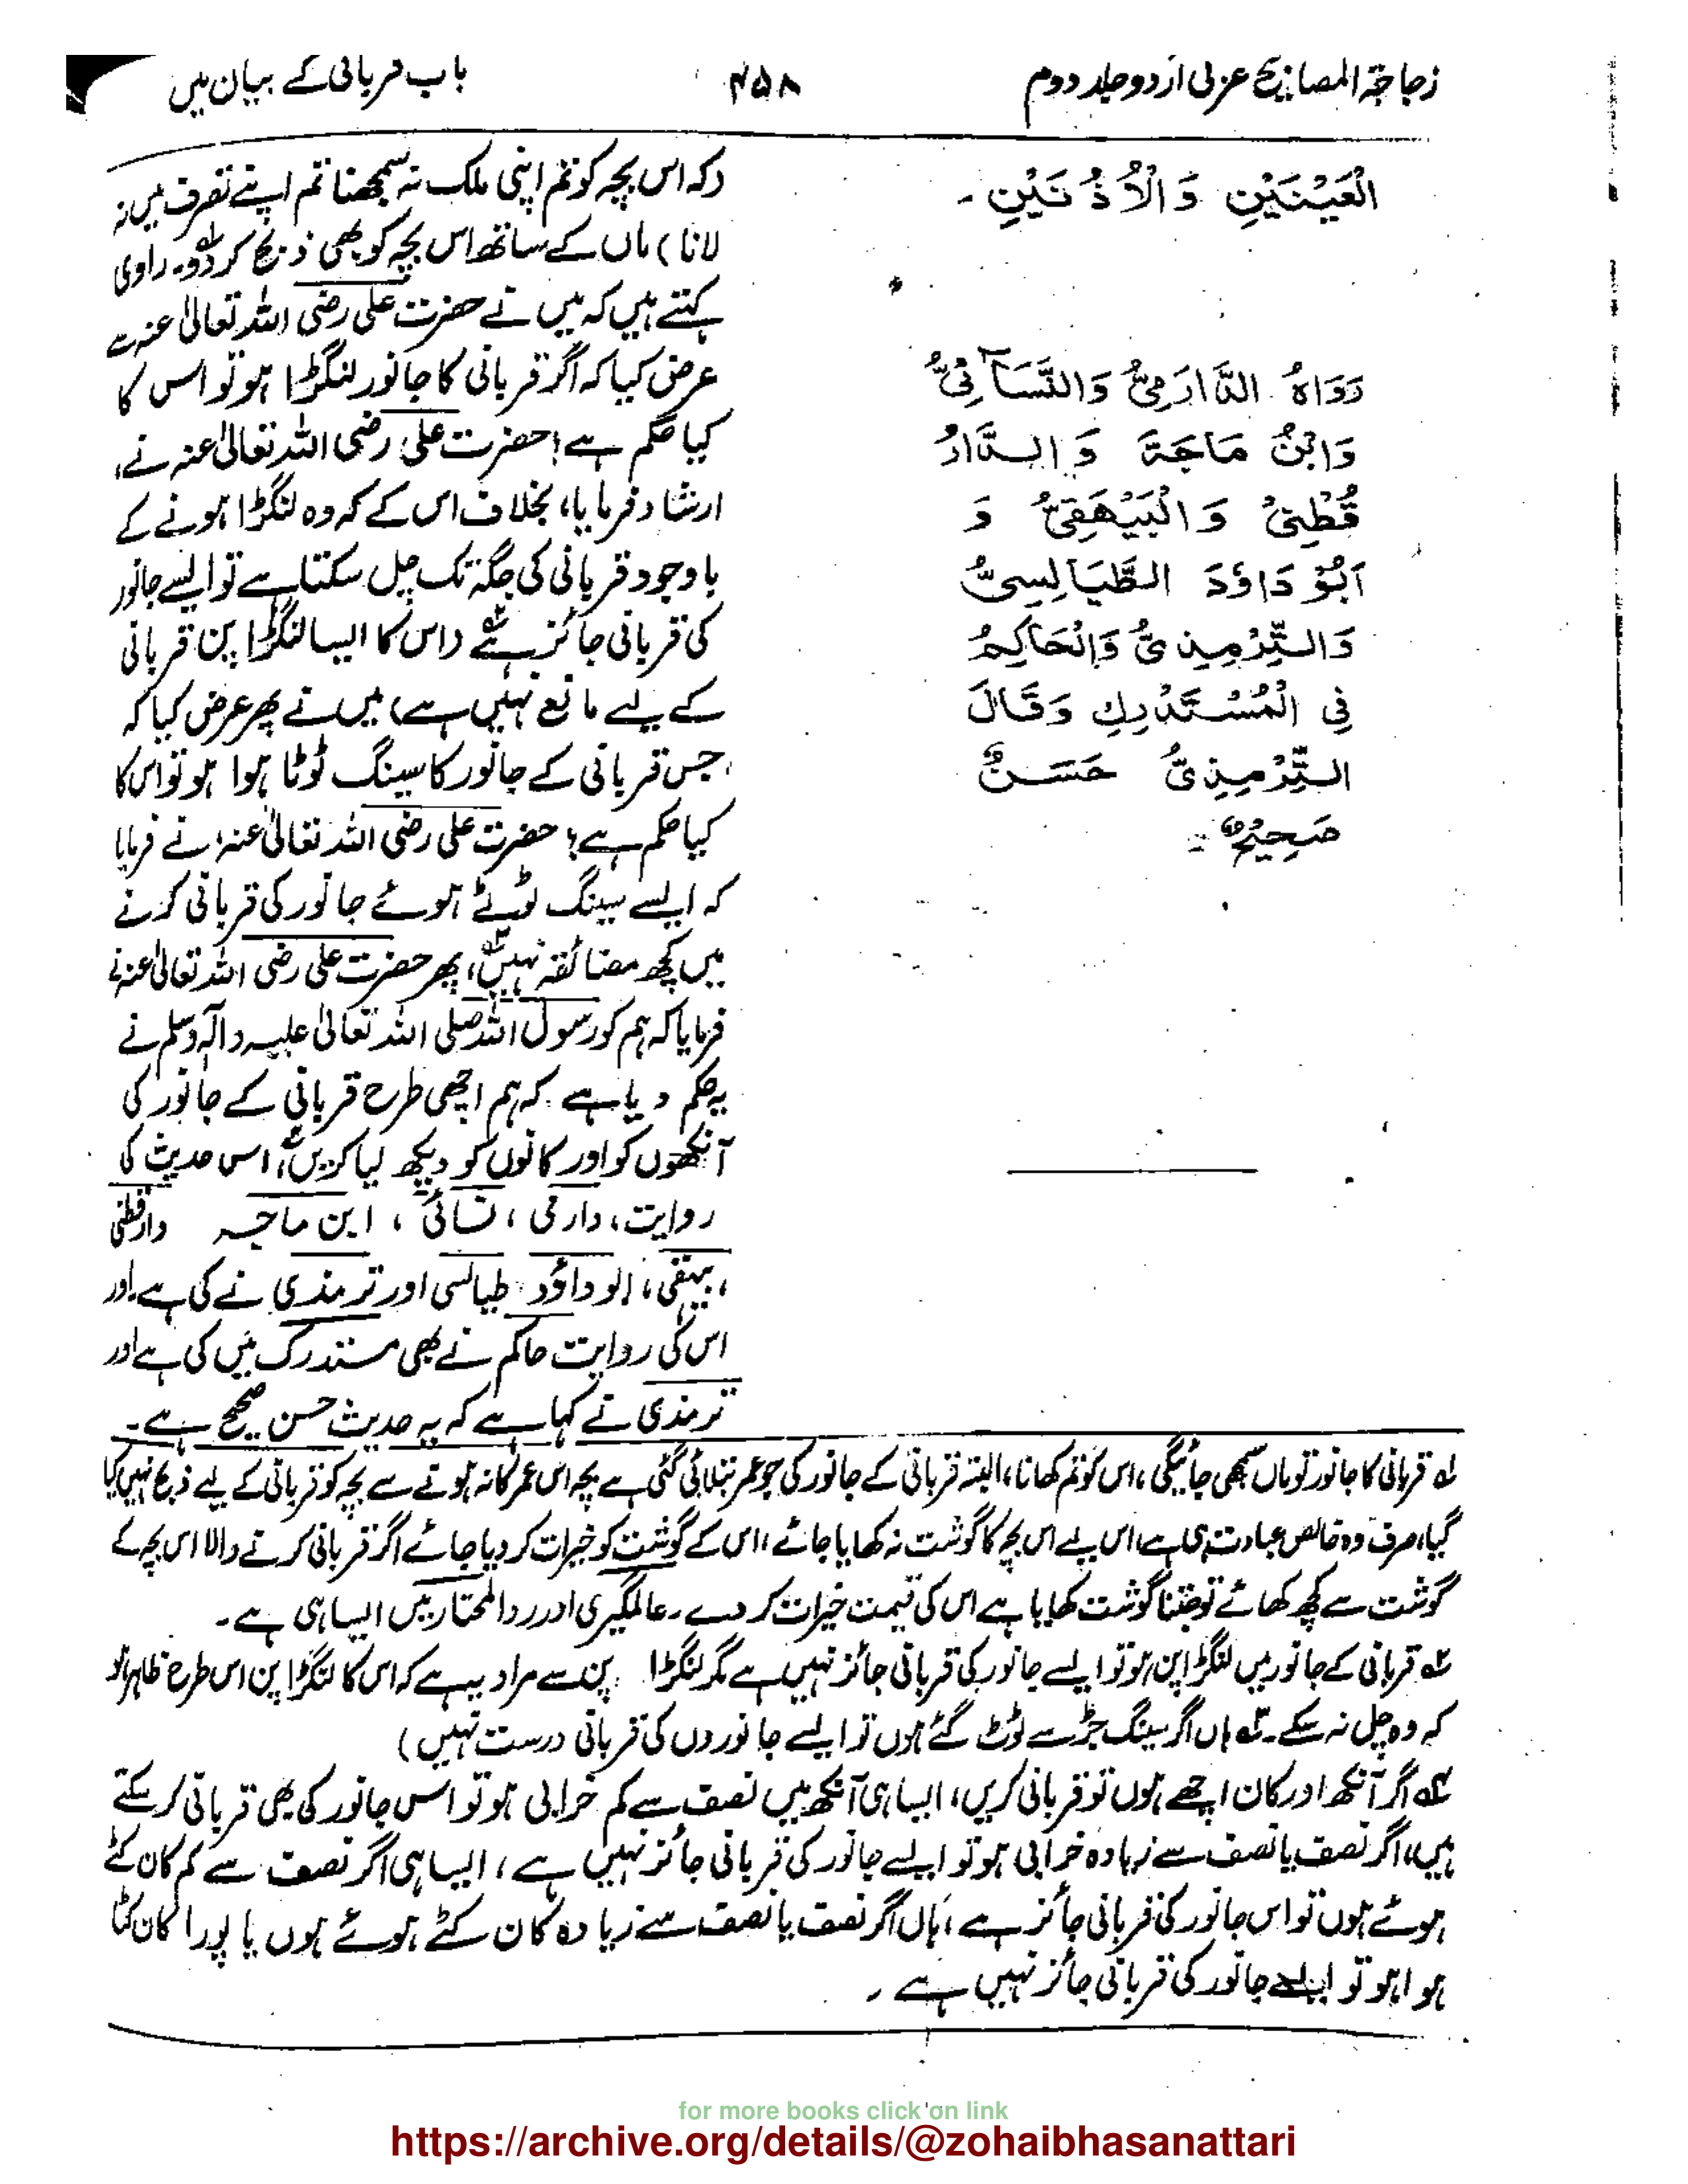 زجاجۃ المصابیح عربی اردو جلد دوم
۴۵۸
باب قربانی کے بیان میں
الْعَيْنَيْنِ وَالْأُذُنَيْنِ۔
رَوَاهُ الدَّارَمِيُّ وَالنَّسَآئِيُّ
وَابْنُ مَاجَةَ وَ الدَّارُ
قُطْنِيْ وَالْبَيْهَقِيُّ وَ
اَبُوْ دَاوُدَ الطَّيَالِسِيُّ
وَالتِّرْمِذِيُّ وَالْحَاكِمُ
فِي الْمُسْتَدْرِكِ وَقَالَ
التِّرْمِذِيُّ حَسَنٌ
صَحِيْحٌ۔
(کہ اس بچہ کو تم اپنی ملک نہ سمجھنا تم اپنے تصرف میں نہ
لانا) ماں کے ساتھ اس بچہ کو بھی ذبح کر دو۔ راوی
کہتے ہیں کہ میں نے حضرت علی رضی اللہ تعالیٰ عنہ سے
عرض کیا کہ اگر قربانی کا جانور لنگڑا ہو تو اس کا
کیا حکم ہے؟ حضرت علی رضی اللہ تعالیٰ عنہ نے،
ارشاد فرمایا، بخلاف اس کے کہ وہ لنگڑا ہونے کے
باوجود قربانی کی جگہ تک چل سکتا ہے تو ایسے جانور
کی قربانی جائز ہے ۲ے (اس کا ایسا لنگڑا پن قربانی
کے لیے مانع نہیں ہے) میں نے پھر عرض کیا کہ
جس قربانی کے جانور کا سینگ ٹوٹا ہوا ہو تو اس کا
کیا حکم ہے؟ حضرت علی رضی اللہ تعالیٰ عنہ نے فرمایا
کہ ایسے سینگ ٹوٹے ہوئے جانور کی قربانی کرنے
میں کچھ مضائقہ نہیں ۳ے، پھر حضرت علی رضی اللہ تعالیٰ عنہ نے
فرمایا کہ ہم کو رسول اللہ صلی اللہ تعالیٰ علیہ وآلہ وسلم نے
یہ حکم دیا ہے کہ ہم اچھی طرح قربانی کے جانور کی
آنکھوں کو اور کانوں کو دیکھ لیا کریں ۴ے، اس حدیث کی
روایت، دارمی، نسائی، ابن ماجہ دارقطنی
، بیہقی، ابو داؤد طیالسی اور ترمذی نے کی ہے اور
اس کی روایت حاکم نے بھی مستدرک میں کی ہے اور
ترمذی نے کہا ہے کہ یہ حدیث حسن صحیح ہے۔
۱ے قربانی کا جانور تو ماں سمجھی جائیگی، اس کو تم کھانا، البتہ قربانی کے جانور کی جو عمر بتلائی گئی ہے بچہ اس عمر کا نہ ہونے سے بچہ کو قربانی کے لیے ذبح نہیں کیا
گیا، صرف وہ خالص عبادت ہی ہے، اس لیے اس بچہ کا گوشت نہ کھایا جائے، اس کے گوشت کو خیرات کر دیا جائے اگر قربانی کرنے والا اس بچہ کے
گوشت سے کچھ کھائے تو جتنا گوشت کھایا ہے اس کی قیمت خیرات کر دے۔ عالمگیری اور ردالمحتار میں ایسا ہی ہے۔
۲ے قربانی کے جانور میں لنگڑا پن ہو تو ایسے جانور کی قربانی جائز نہیں ہے مگر لنگڑا پن سے مراد یہ ہے کہ اس کا لنگڑا پن اس طرح ظاہر ہو
کہ وہ چل نہ سکے۔ ۳ے ہاں اگر سینگ جڑ سے ٹوٹ گئے ہوں تو ایسے جانوروں کی قربانی درست نہیں)
۴ے اگر آنکھ اور کان اچھے ہوں تو قربانی کریں، ایسا ہی آنکھ میں نصف سے کم خرابی ہو تو اس جانور کی بھی قربانی کر سکتے
ہیں، اگر نصف یا نصف سے زیادہ خرابی ہو تو ایسے جانور کی قربانی جائز نہیں ہے، ایسا ہی اگر نصف سے کم کان کٹے
ہوئے ہوں تو اس جانور کی قربانی جائز ہے، ہاں اگر نصف یا نصف سے زیادہ کان کٹے ہوئے ہوں یا پورا کان کٹا
ہوا ہو تو ایسے جانور کی قربانی جائز نہیں ہے۔
for more books click on link
https://archive.org/details/@zohaibhasanattari